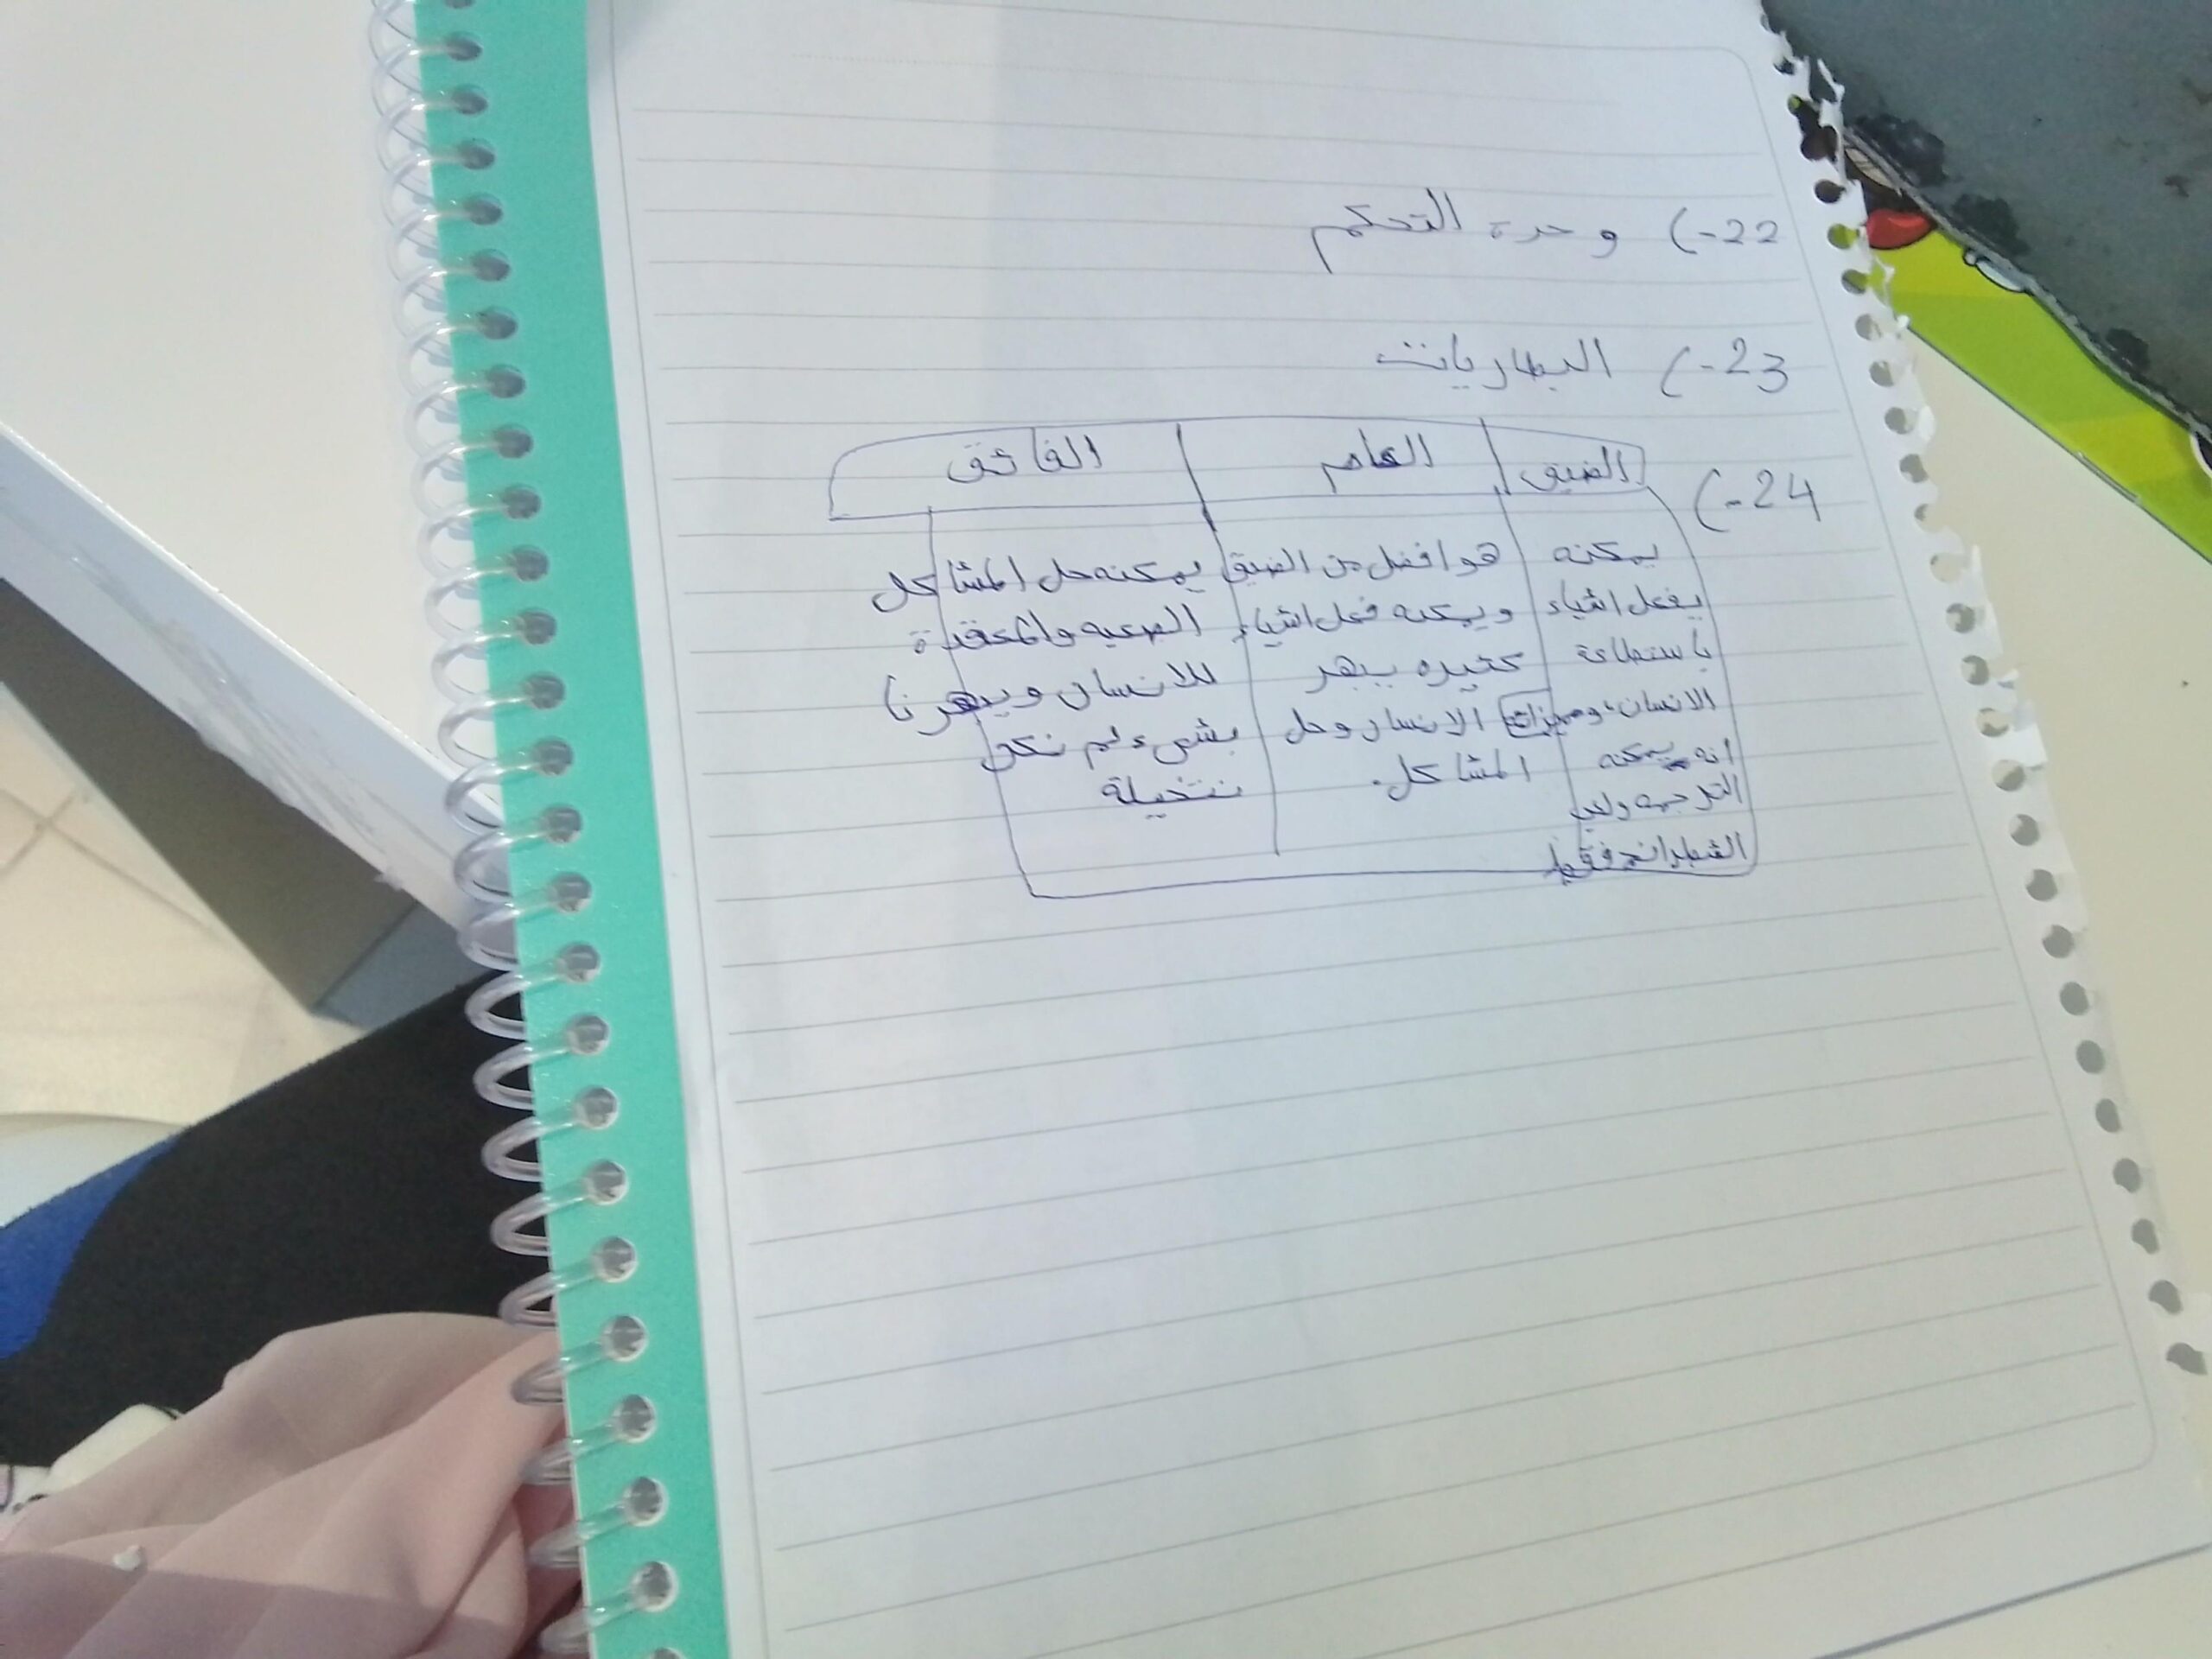 22-) وحدة التحكم
23-) البطاريات
24-)
الضيق | العام | الفائق
يمكنه | هو افضل من الضيق | يمكنه حل المشاكل
يفعل اشياء | ويمكنه فعل اشياء | الصعبه والمعقدة
باستطاعة | كثيره يبهر | للانسان ويبهرنا
الانسان، | الانسان وحل | بشيء لم نكن
انه يمكنه | المشاكل. | نتخيلة
الترجمه ولعب
الشطرانج فقط